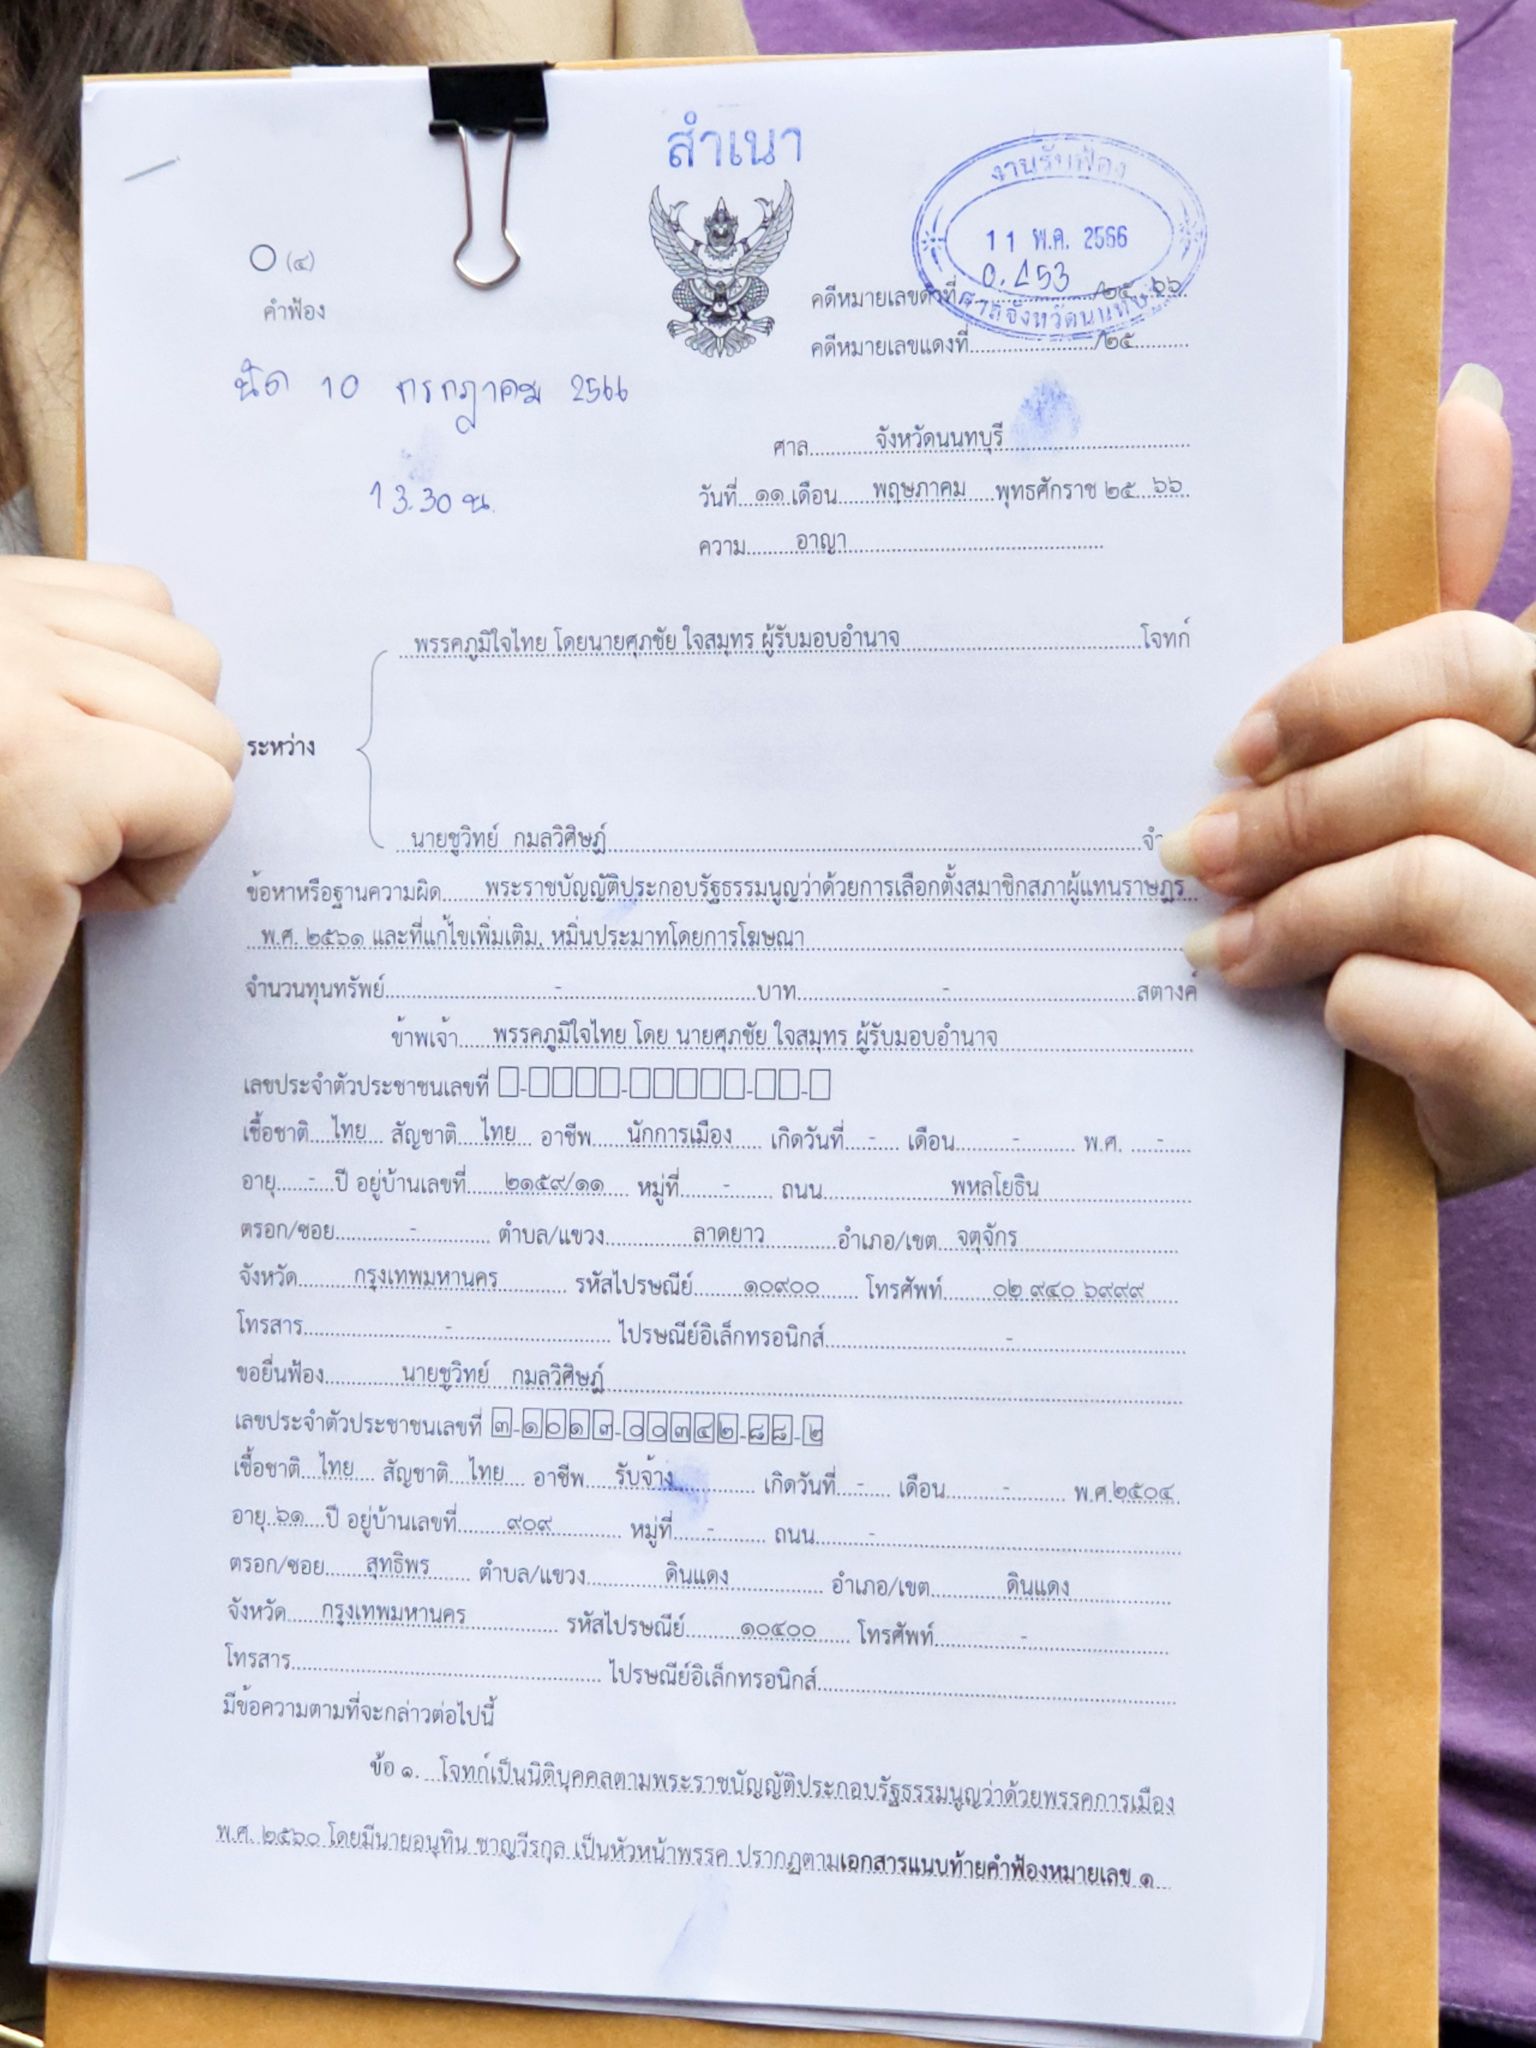 สำเนา
งานรับฟ้อง
11 พ.ค. 2566
(๔)
คำฟ้อง
คดีหมายเลขดำที่ 453 /๒๕ ๖๖
ศาลจังหวัดนนทบุรี
คดีหมายเลขแดงที่ /๒๕
นัด 10 กรกฎาคม 2566
13.30 น.
ศาล จังหวัดนนทบุรี
วันที่ ๑๑ เดือน พฤษภาคม พุทธศักราช ๒๕ ๖๖
ความ อาญา
พรรคภูมิใจไทย โดยนายศุภชัย ใจสมุทร ผู้รับมอบอำนาจ โจทก์
ระหว่าง
นายชูวิทย์ กมลวิศิษฎ์
ข้อหาหรือฐานความผิด พระราชบัญญัติประกอบรัฐธรรมนูญว่าด้วยการเลือกตั้งสมาชิกสภาผู้แทนราษฎร
พ.ศ. ๒๕๖๑ และที่แก้ไขเพิ่มเติม, หมิ่นประมาทโดยการโฆษณา
จำนวนทุนทรัพย์ - บาท - สตางค์
ข้าพเจ้า พรรคภูมิใจไทย โดย นายศุภชัย ใจสมุทร ผู้รับมอบอำนาจ
เลขประจำตัวประชาชนเลขที่
เชื้อชาติ ไทย สัญชาติ ไทย อาชีพ นักการเมือง เกิดวันที่ - เดือน - พ.ศ. -
อายุ - ปี อยู่บ้านเลขที่ ๒๑๕๙/๑๑ หมู่ที่ - ถนน พหลโยธิน
ตรอก/ซอย - ตำบล/แขวง ลาดยาว อำเภอ/เขต จตุจักร
จังหวัด กรุงเทพมหานคร รหัสไปรษณีย์ ๑๐๙๐๐ โทรศัพท์ ๐๒ ๙๔๐ ๖๙๙๙
โทรสาร - ไปรษณีย์อิเล็กทรอนิกส์ -
ขอยื่นฟ้อง นายชูวิทย์ กมลวิศิษฎ์
เลขประจำตัวประชาชนเลขที่ ๓-๑๐๑๓-๐๐๓๔๒-๘๘-๒
เชื้อชาติ ไทย สัญชาติ ไทย อาชีพ รับจ้าง เกิดวันที่ - เดือน - พ.ศ.๒๕๐๔
อายุ ๖๑ ปี อยู่บ้านเลขที่ ๙๐๙ หมู่ที่ - ถนน -
ตรอก/ซอย สุทธิพร ตำบล/แขวง ดินแดง อำเภอ/เขต ดินแดง
จังหวัด กรุงเทพมหานคร รหัสไปรษณีย์ ๑๐๔๐๐ โทรศัพท์ -
โทรสาร ไปรษณีย์อิเล็กทรอนิกส์
มีข้อความตามที่จะกล่าวต่อไปนี้
ข้อ ๑. โจทก์เป็นนิติบุคคลตามพระราชบัญญัติประกอบรัฐธรรมนูญว่าด้วยพรรคการเมือง
พ.ศ. ๒๕๖๐ โดยมีนายอนุทิน ชาญวีรกูล เป็นหัวหน้าพรรค ปรากฏตามเอกสารแนบท้ายคำฟ้องหมายเลข ๑